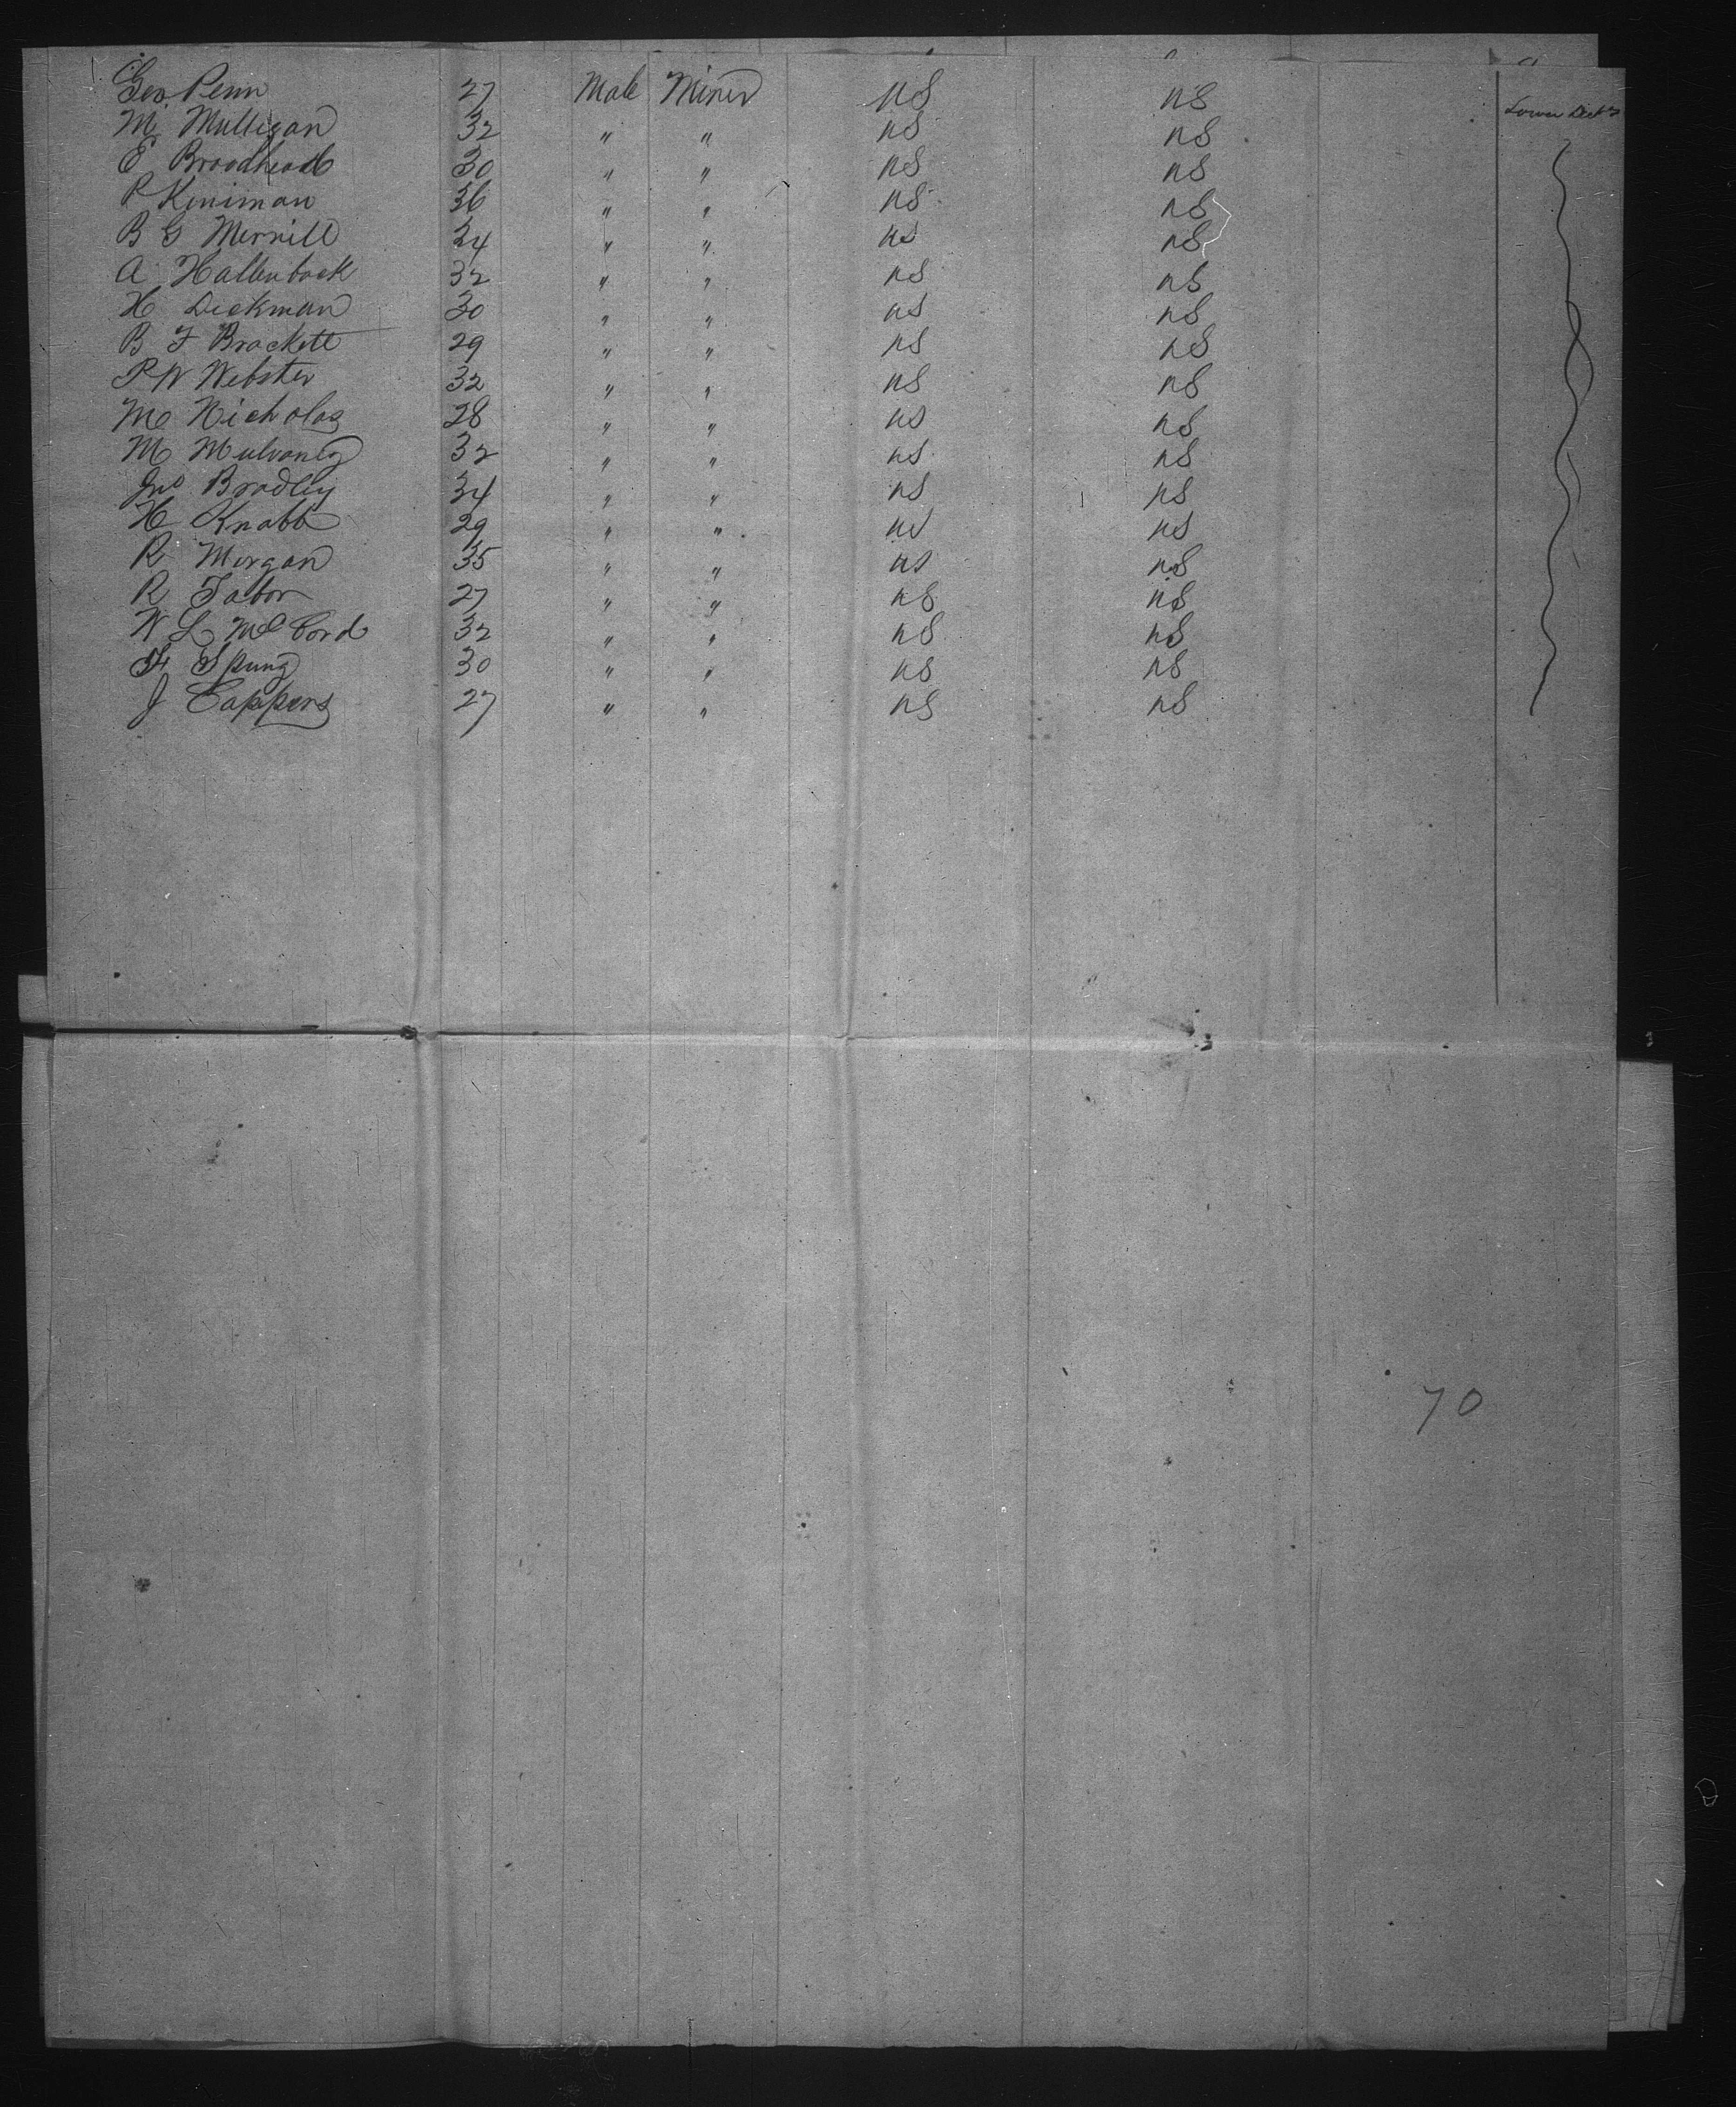 Geo. Penn 27 Male Miner US US Lower Dist
M Mulligan 32 " " US US
E Broadhead 30 " " US US
P Keniman 36 " " US US
B G Merrill 24 " " US US
A Hallenback 32 " " US US
H Dickman 30 " " US US
B F Brackett 29 " " US US
P W Webster 32 " " US US
Mc Nicholas 28 " " US US
M Mulvaney 32 " " US US
Jno Bradley 34 " " US US
H Knabb 29 " " US US
R Morgan 35 " " US US
R Tabor 27 " " US US
W L McCord 32 " " US US
F Spung 30 " " US US
J Cappers 27 " " US US
70